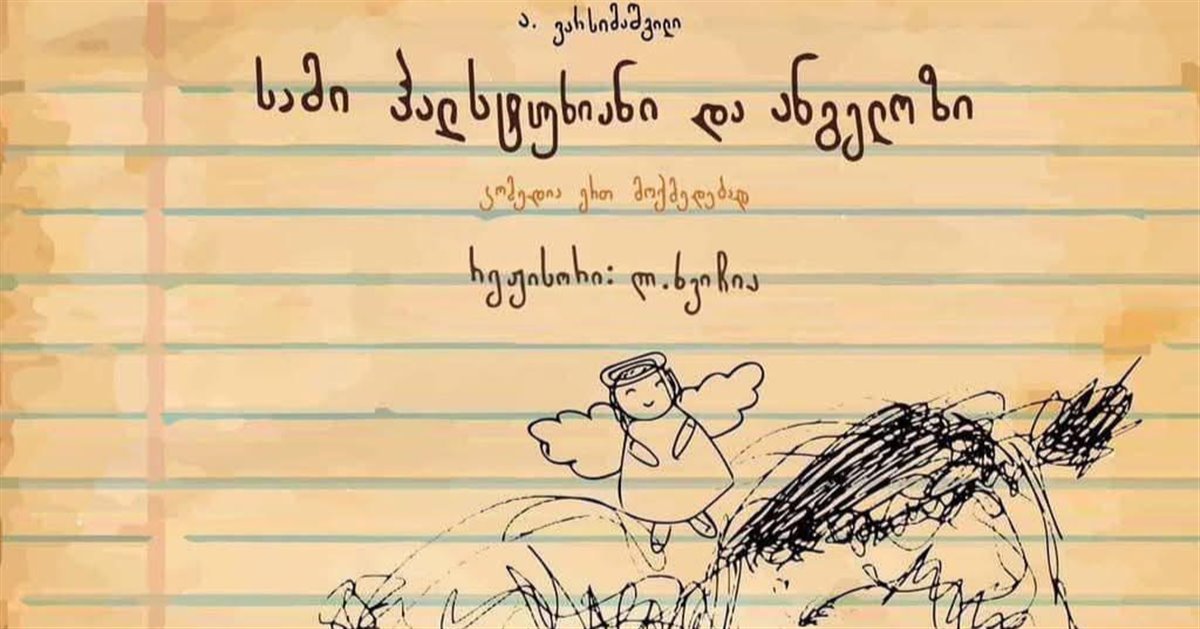 ა. ვარსიმაშვილი
სამი ჰალსტუხიანი და ანგელოზი
კომედია ერთ მოქმედებად
რეჟისორი: ლ.ხვიჩია